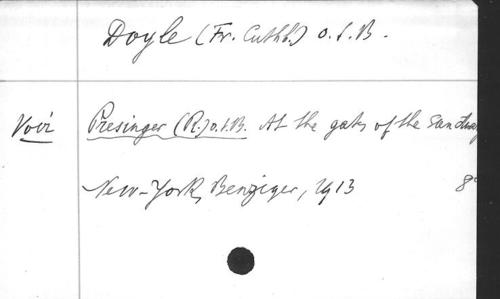 Doyle (Fr. Cuthb.) O.S.B.
Voir Presinger (R.) O.S.B. At the gates of the Sanctuary
New-York, Benziger, 1913 8°